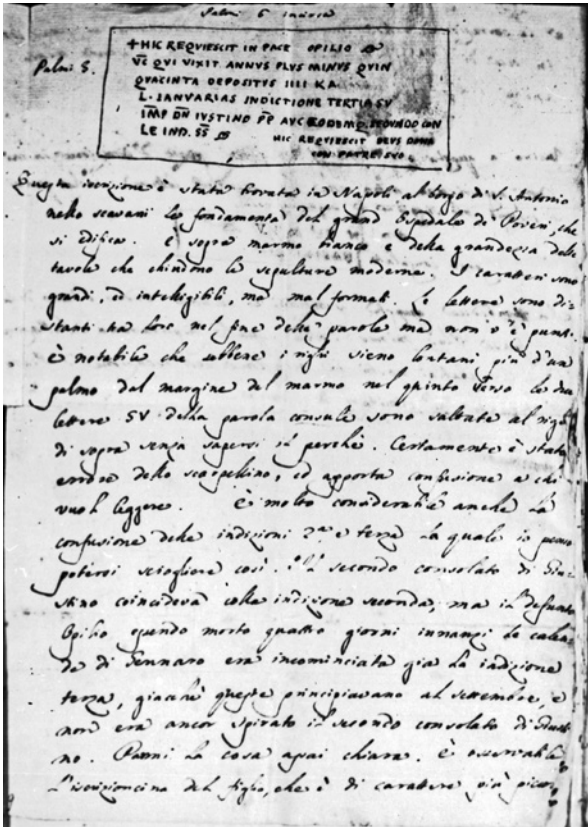 Palmi 6 incirca
Palmi 5.
+HIC REQUIESCIT IN PACE OPILIO
VC QVI VIXIT ANNVS PLVS MINVS QVIN
QVACINTA DEPOSITVS IIII KA
L. IANVARIAS INDICTIONE TERTIA SV
IMP DN IVSTINO PP AVC EODEMQ. SECVNDO CON
LE IND. SS
HIC REQVIESCIT DEVS DONA
CON PATRE SVO
Questa iscrizione è stata trovata in Napoli al borgo di S. Antonio
nello scavarsi le fondamenta del grand Ospedale de' Poveri, che
si edifica. È sopra marmo bianco e della grandezza delle
tavole che chiudono le sepulture moderne. I caratteri sono
grandi, ed intelligibili, ma mal formati. Le lettere sono di-
stanti tra loro nel fine delle parole ma non v'è punti.
è notabile che sebbene i righi sieno lontani più d'un
palmo dal margine del marmo nel quinto verso le due
lettere SV della parola consule sono saltate al rigo
di sopra senza sapersi il perchè. Certamente è stato
errore dello scarpellino, ed apporta confusione a chi
vuol leggere. È molto considerabile anche la
confusione delle indizioni 2a e terza la quale io penso
potersi sciogliere così. Il secondo consolato di Giu-
stino coincideva colla indizione seconda, ma il defunto
Opilio essendo morto quattro giorni innanzi le calen-
de di Gennaro era incominciata già la indizione
terza, giacchè queste principiavano al settembre, e
non era ancor spirato il secondo consolato di Giusti-
no. Parmi la cosa assai chiara. È osservabile
l'iscrizioncina del figlio, che è di carattere più picco-